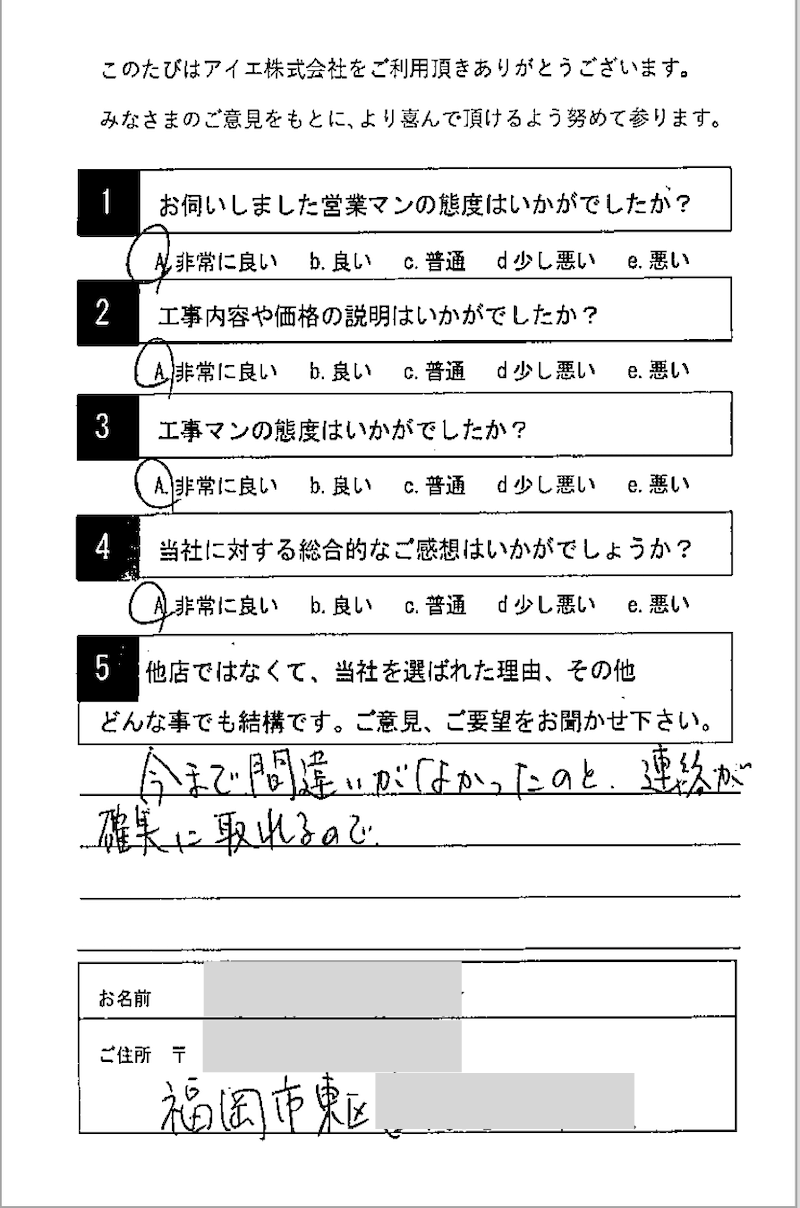 このたびはアイエ株式会社をご利用頂きありがとうございます。
みなさまのご意見をもとに、より喜んで頂けるよう努めて参ります。
1 お伺いしました営業マンの態度はいかがでしたか?
A. 非常に良い b. 良い c. 普通 d 少し悪い e. 悪い
2 工事内容や価格の説明はいかがでしたか?
A. 非常に良い b. 良い c. 普通 d 少し悪い e. 悪い
3 工事マンの態度はいかがでしたか?
A. 非常に良い b. 良い c. 普通 d 少し悪い e. 悪い
4 当社に対する総合的なご感想はいかがでしょうか?
A. 非常に良い b. 良い c. 普通 d 少し悪い e. 悪い
5 他店ではなくて、当社を選ばれた理由、その他
どんな事でも結構です。ご意見、ご要望をお聞かせ下さい。
今まで間違いがなかったのと、連絡が
確実に取れるので。
お名前
ご住所 〒
福岡市東区